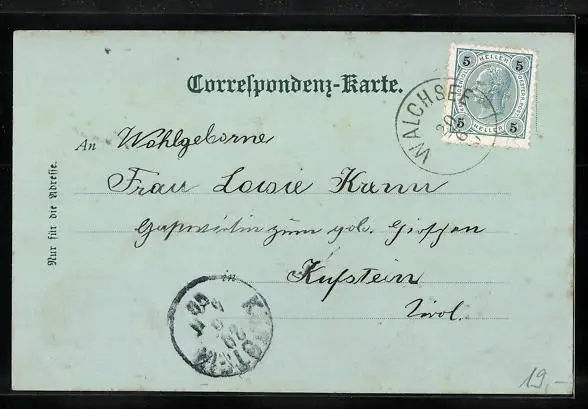 Correspondenz-Karte.
5 HELLER 5
5 HELLER 5
WALCHSEE
20
An Wohlgeborne
Frau Louise Kramm
Gastwirtin zum gold. Hirschen
in Kufstein
Tirol.
Nur für die Adresse.
KUFSTEIN
19,-